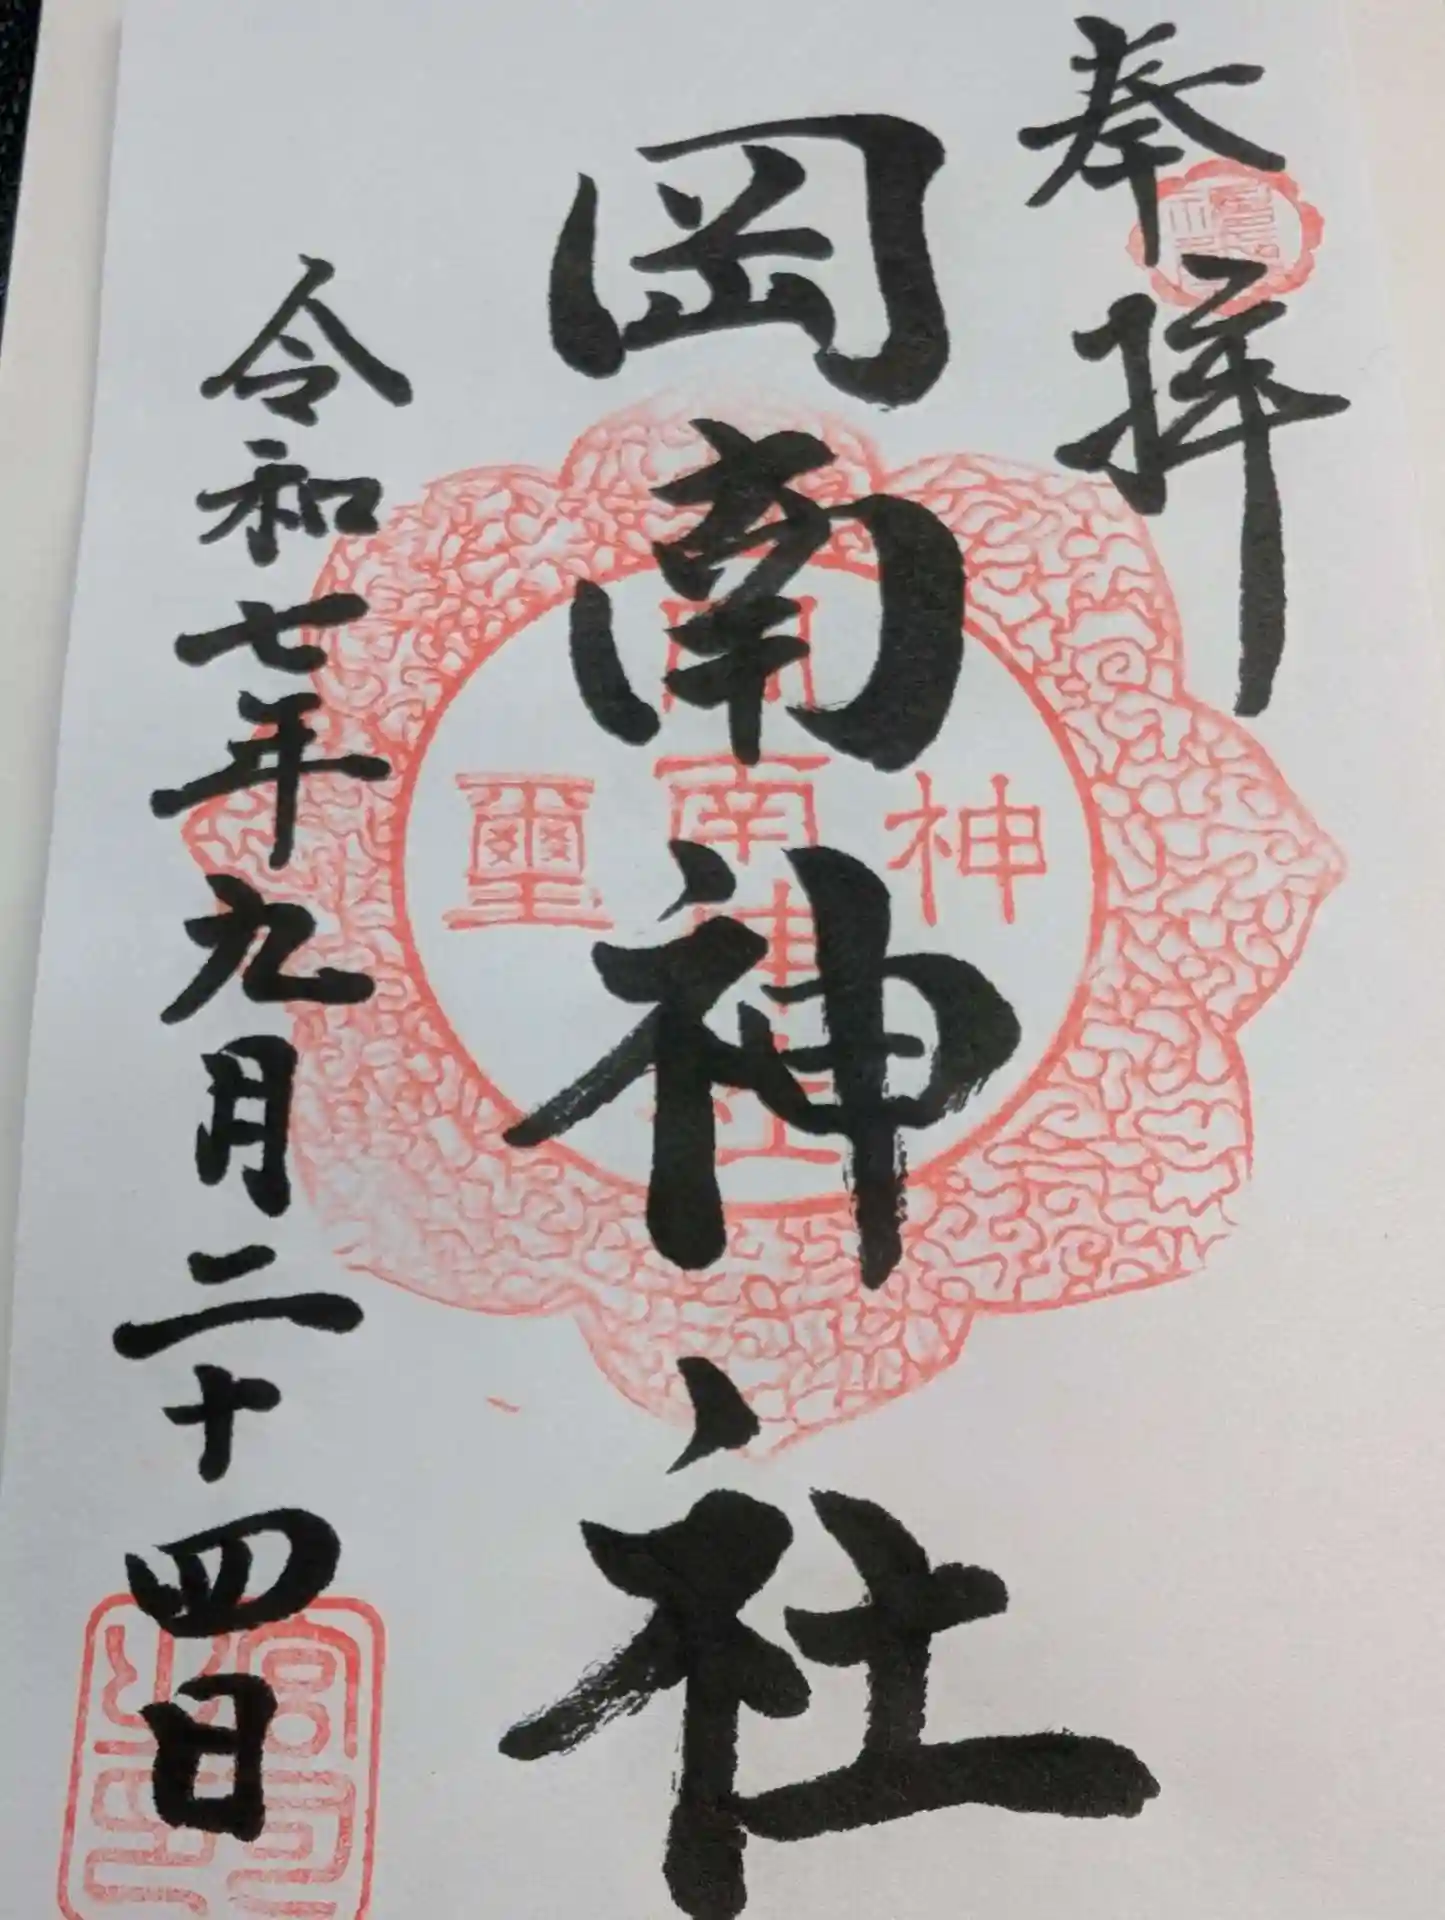 奉拝
岡南神社
神
岡南神社
璽
令和七年九月二十四日
宮司之印